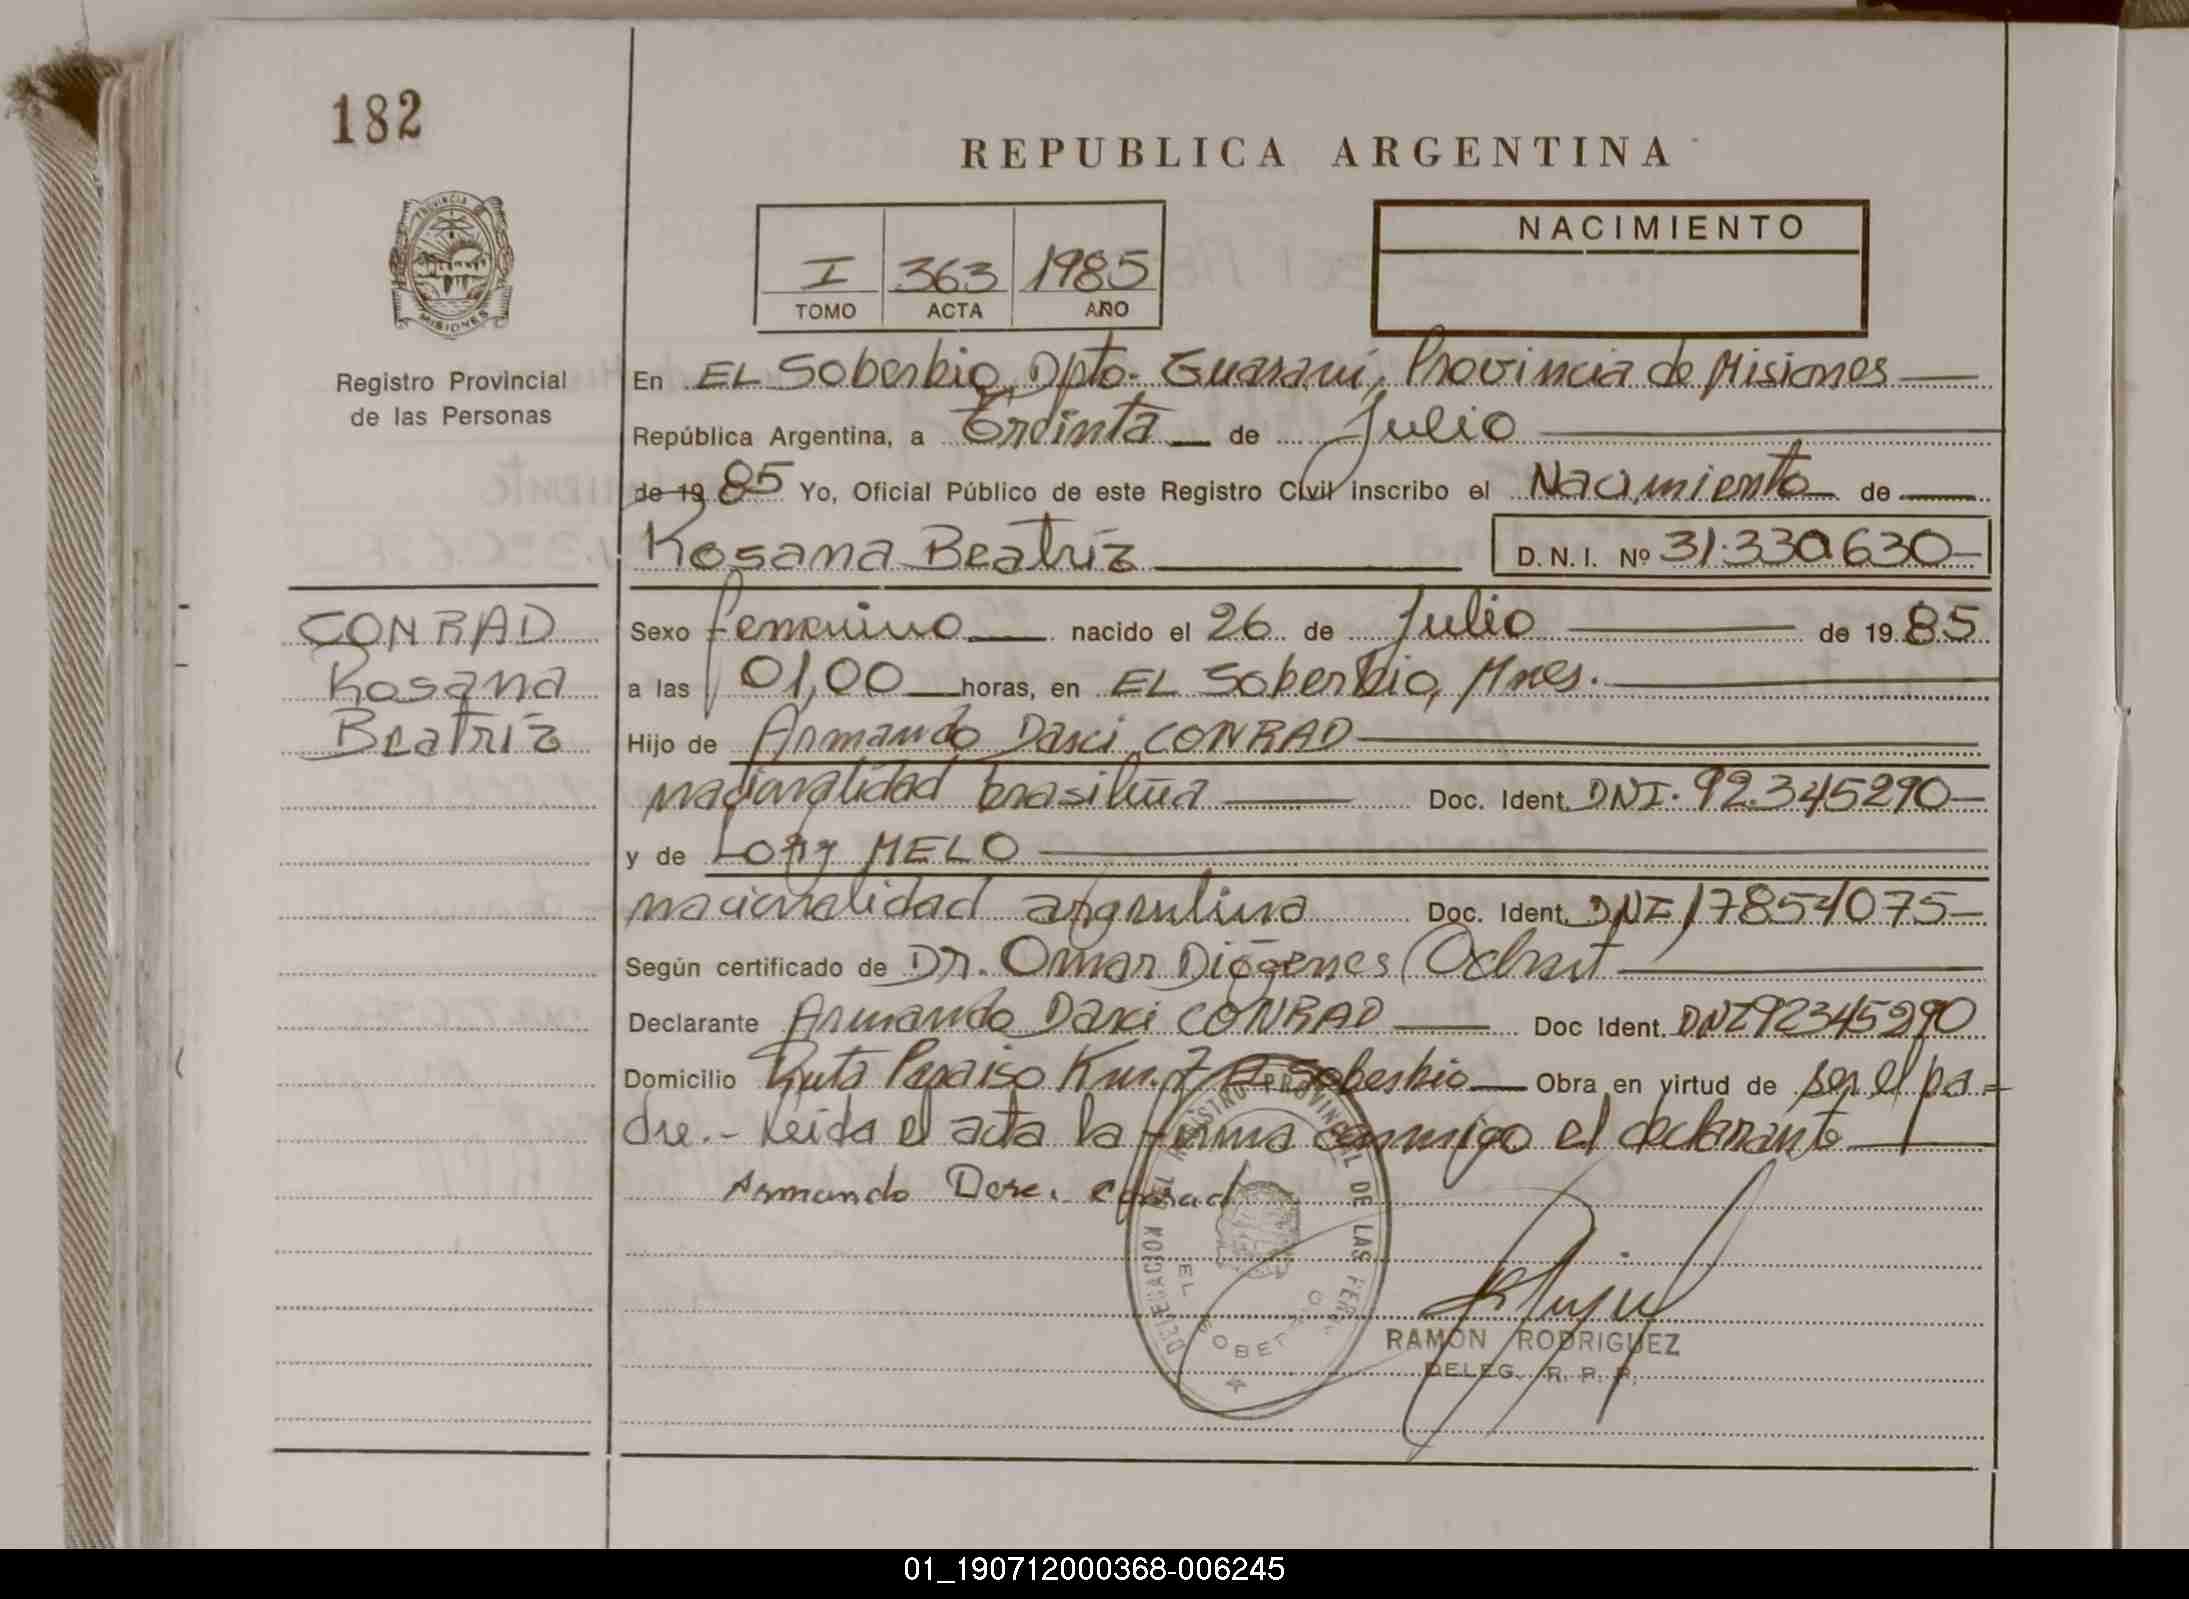 182
REPUBLICA ARGENTINA
PROVINCIA DE
MISIONES
Registro Provincial
de las Personas
I 363 1985
TOMO ACTA AÑO
NACIMIENTO
En EL Soberbio, Dpto. Guaraní, Provincia de Misiones
República Argentina, a Treinta de Julio
de 19 85 Yo, Oficial Público de este Registro Civil inscribo el Nacimiento de
Rosana Beatriz D.N.I. Nº 31.330.630
CONRAD
Rosana
Beatriz
Sexo femenino nacido el 26 de Julio de 19 85
a las 01,00 horas, en EL Soberbio, Mnes.
Hijo de Armando Darci CONRAD
nacionalidad brasileña Doc. Ident. DNI. 92.345290
y de Lory MELO
nacionalidad argentina Doc. Ident. DNI 17854075
Según certificado de Dr. Omar Diógenes
Declarante Armando Darci CONRAD Doc Ident. DNI 92345290
Domicilio Ruta Paraiso Km. 7 El Soberbio Obra en virtud de ser el pa-
dre.- Leida el acta la firma conmigo el declarante
Armando Conrad
REGISTRO PROVINCIAL DE LAS
EL SOBERBIO
RAMON RODRIGUEZ
DELEG. R. P. P.
01_190712000368-006245